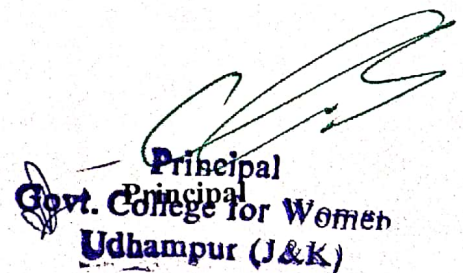 Principal
Principal
Govt. College for Women
Udhampur (J&K)